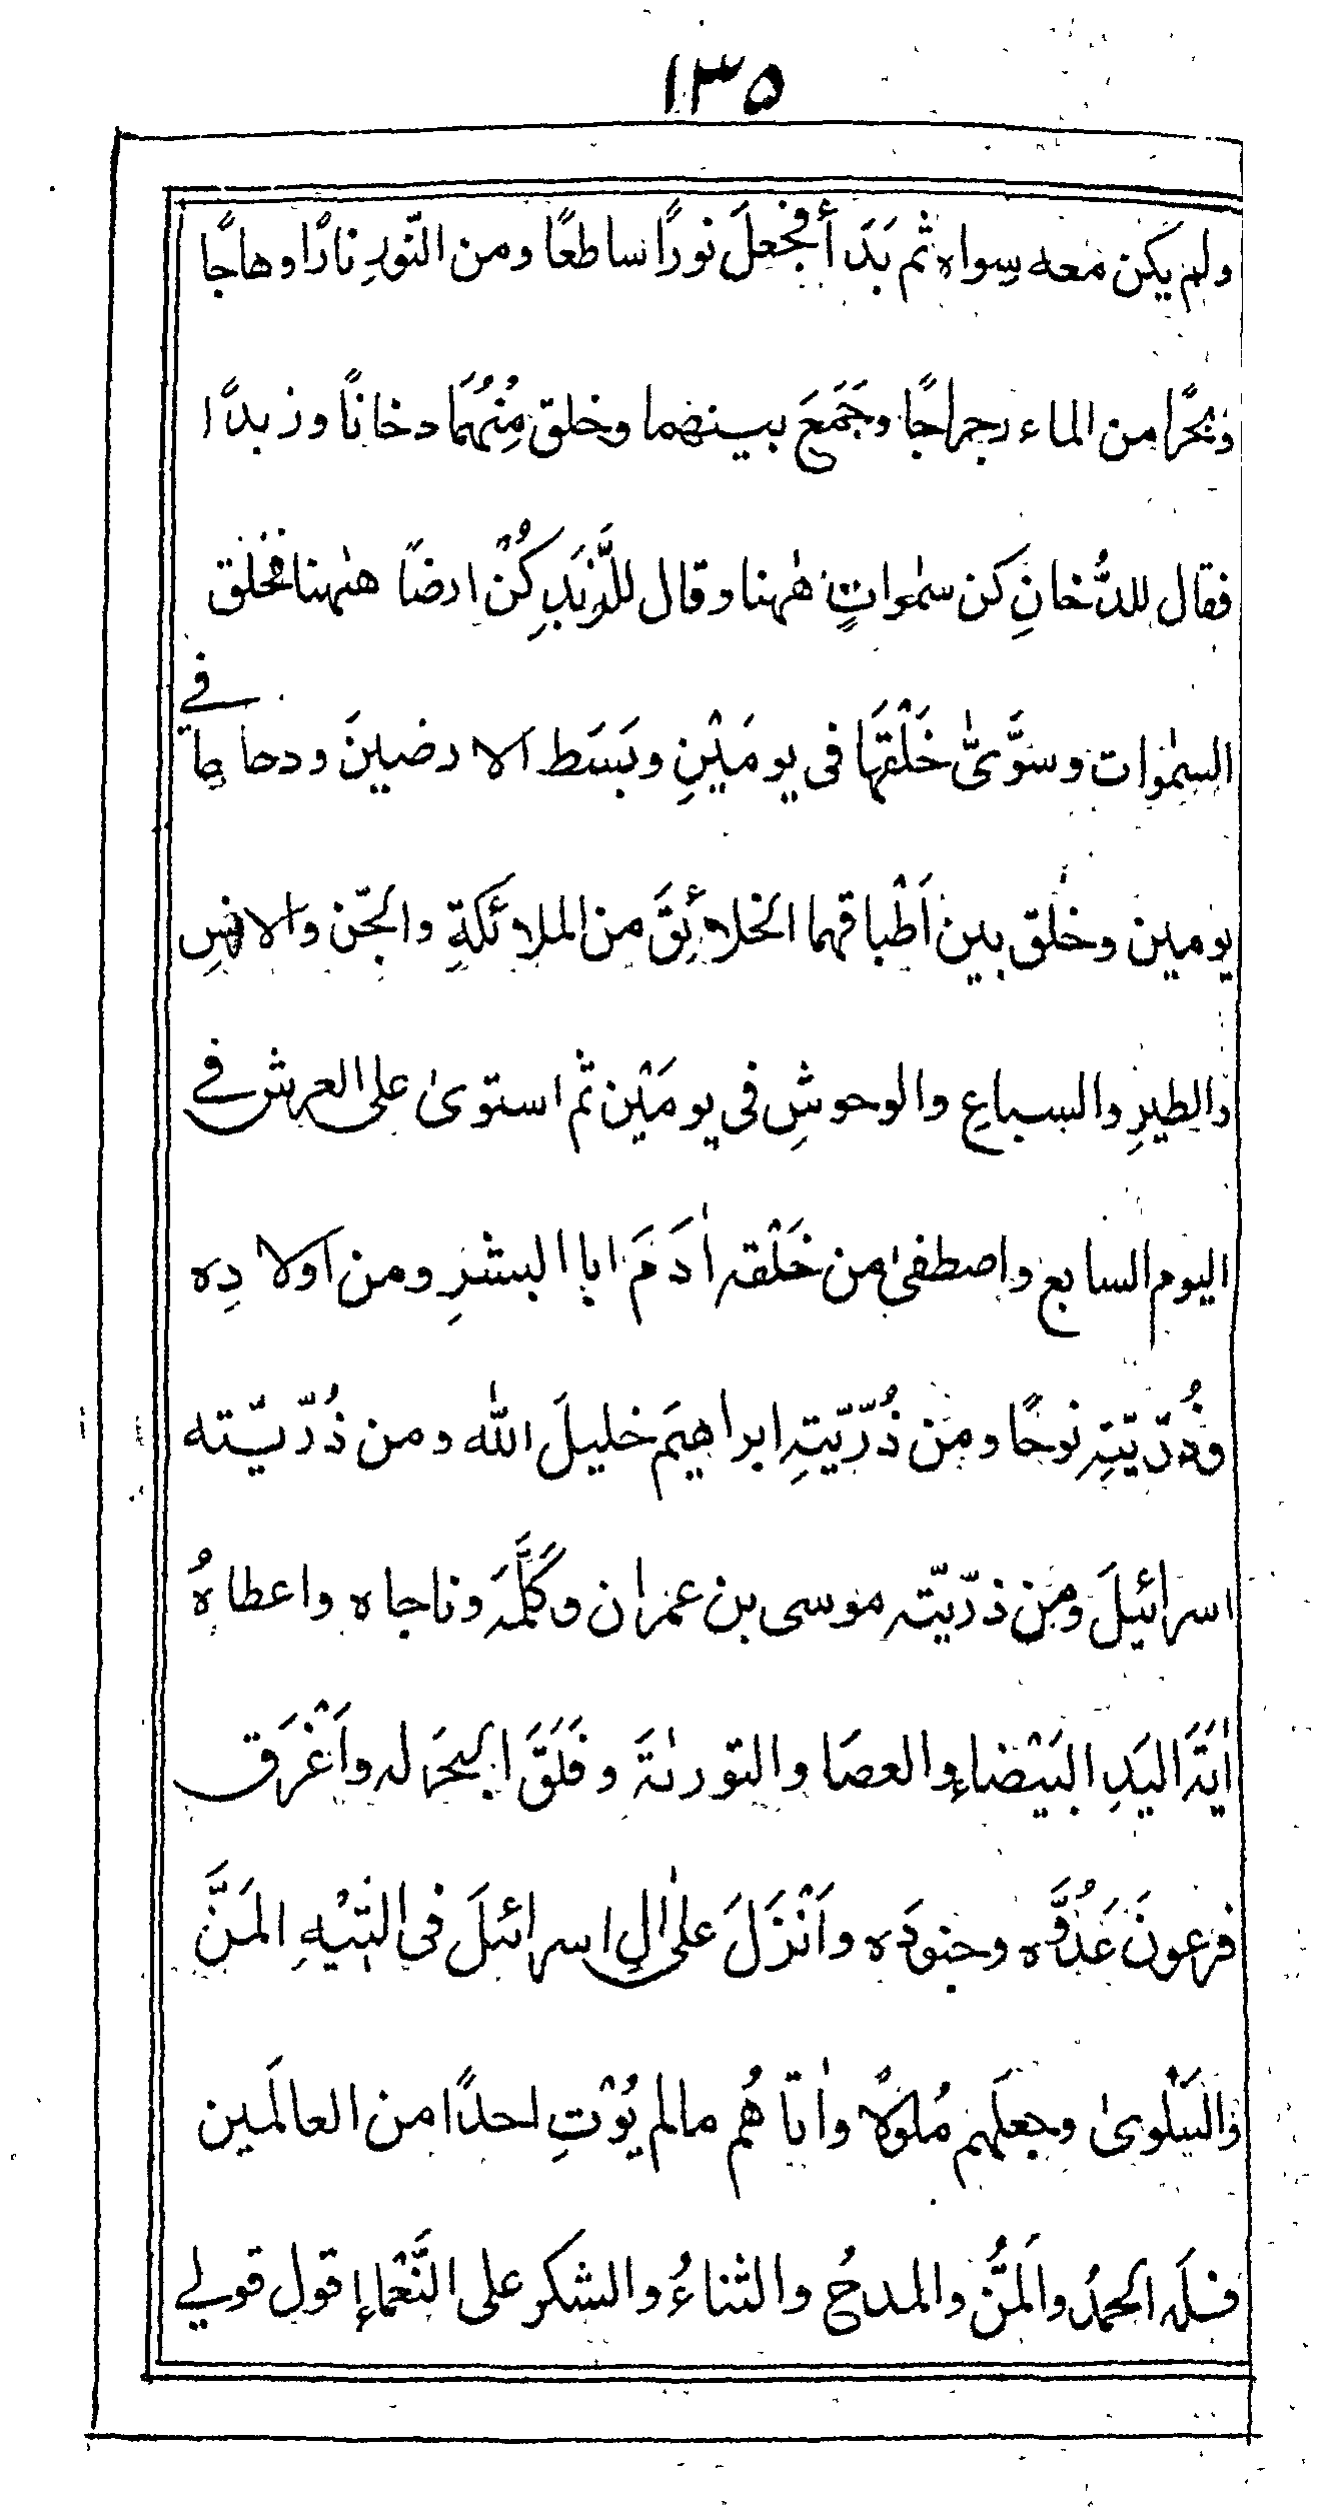 ١٣٥
ولم يكن معه سِواه ثم بَدَأ فجَعلَ نورًا ساطعًا ومن النّورِ نارًا وهاجًا
وبحرًا من الماء رجراجًا وجَمَعَ بينهما وخلق مِنْهُمَا دخانًا وزبدًا
فقال للدُّخانِ كن سمٰواتٍ هٰهنا وقال للزَّبَدِ كُنْ ارضًا هٰهنا فخلق
السمٰوات وسوَّىٰ خَلْقَهَا فى يومَيْنِ وبَسَط الارضينَ ودحاها فے
يومين وخلق بين اَطْباقهما الخلائِقَ من الملائكةِ والجّن والانسِ
والطيرِ والسباعِ والوحوشِ فى يومَيْن ثم استوىٰ على العرش فے
اليوم السابع واصطفىٰ من خَلْقه اٰدَمَ ابا البشرِ ومن اولادِه
وذُرّيّتِه نوحًا ومن ذُرّيّتِه ابراهيمَ خليلَ الله ومن ذُرّيّته
اسرائيلَ ومن ذرّيّته موسى بن عمران وكَلَّمَه وناجاه واعطاهُ
اٰيَةَ اليَدِ البَيْضاءِ والعصَا والتورىٰةَ وفَلَقَ البحَر له واَغْرَق
فرعونَ عَدُوَّه وجنودَه واَنْزَلَ علىٰ اٰلِ اسرائيلَ فى التّيْهِ المَنَّ
والسَلْوىٰ وجعلَهم مُلوكًا واٰتاهُم مالم يُوْتِ احدًا من العالَمين
فله الحمدُ والمَنُّ والمدحُ والثناءُ والشكر على النَّعْماءِ اقول قولي